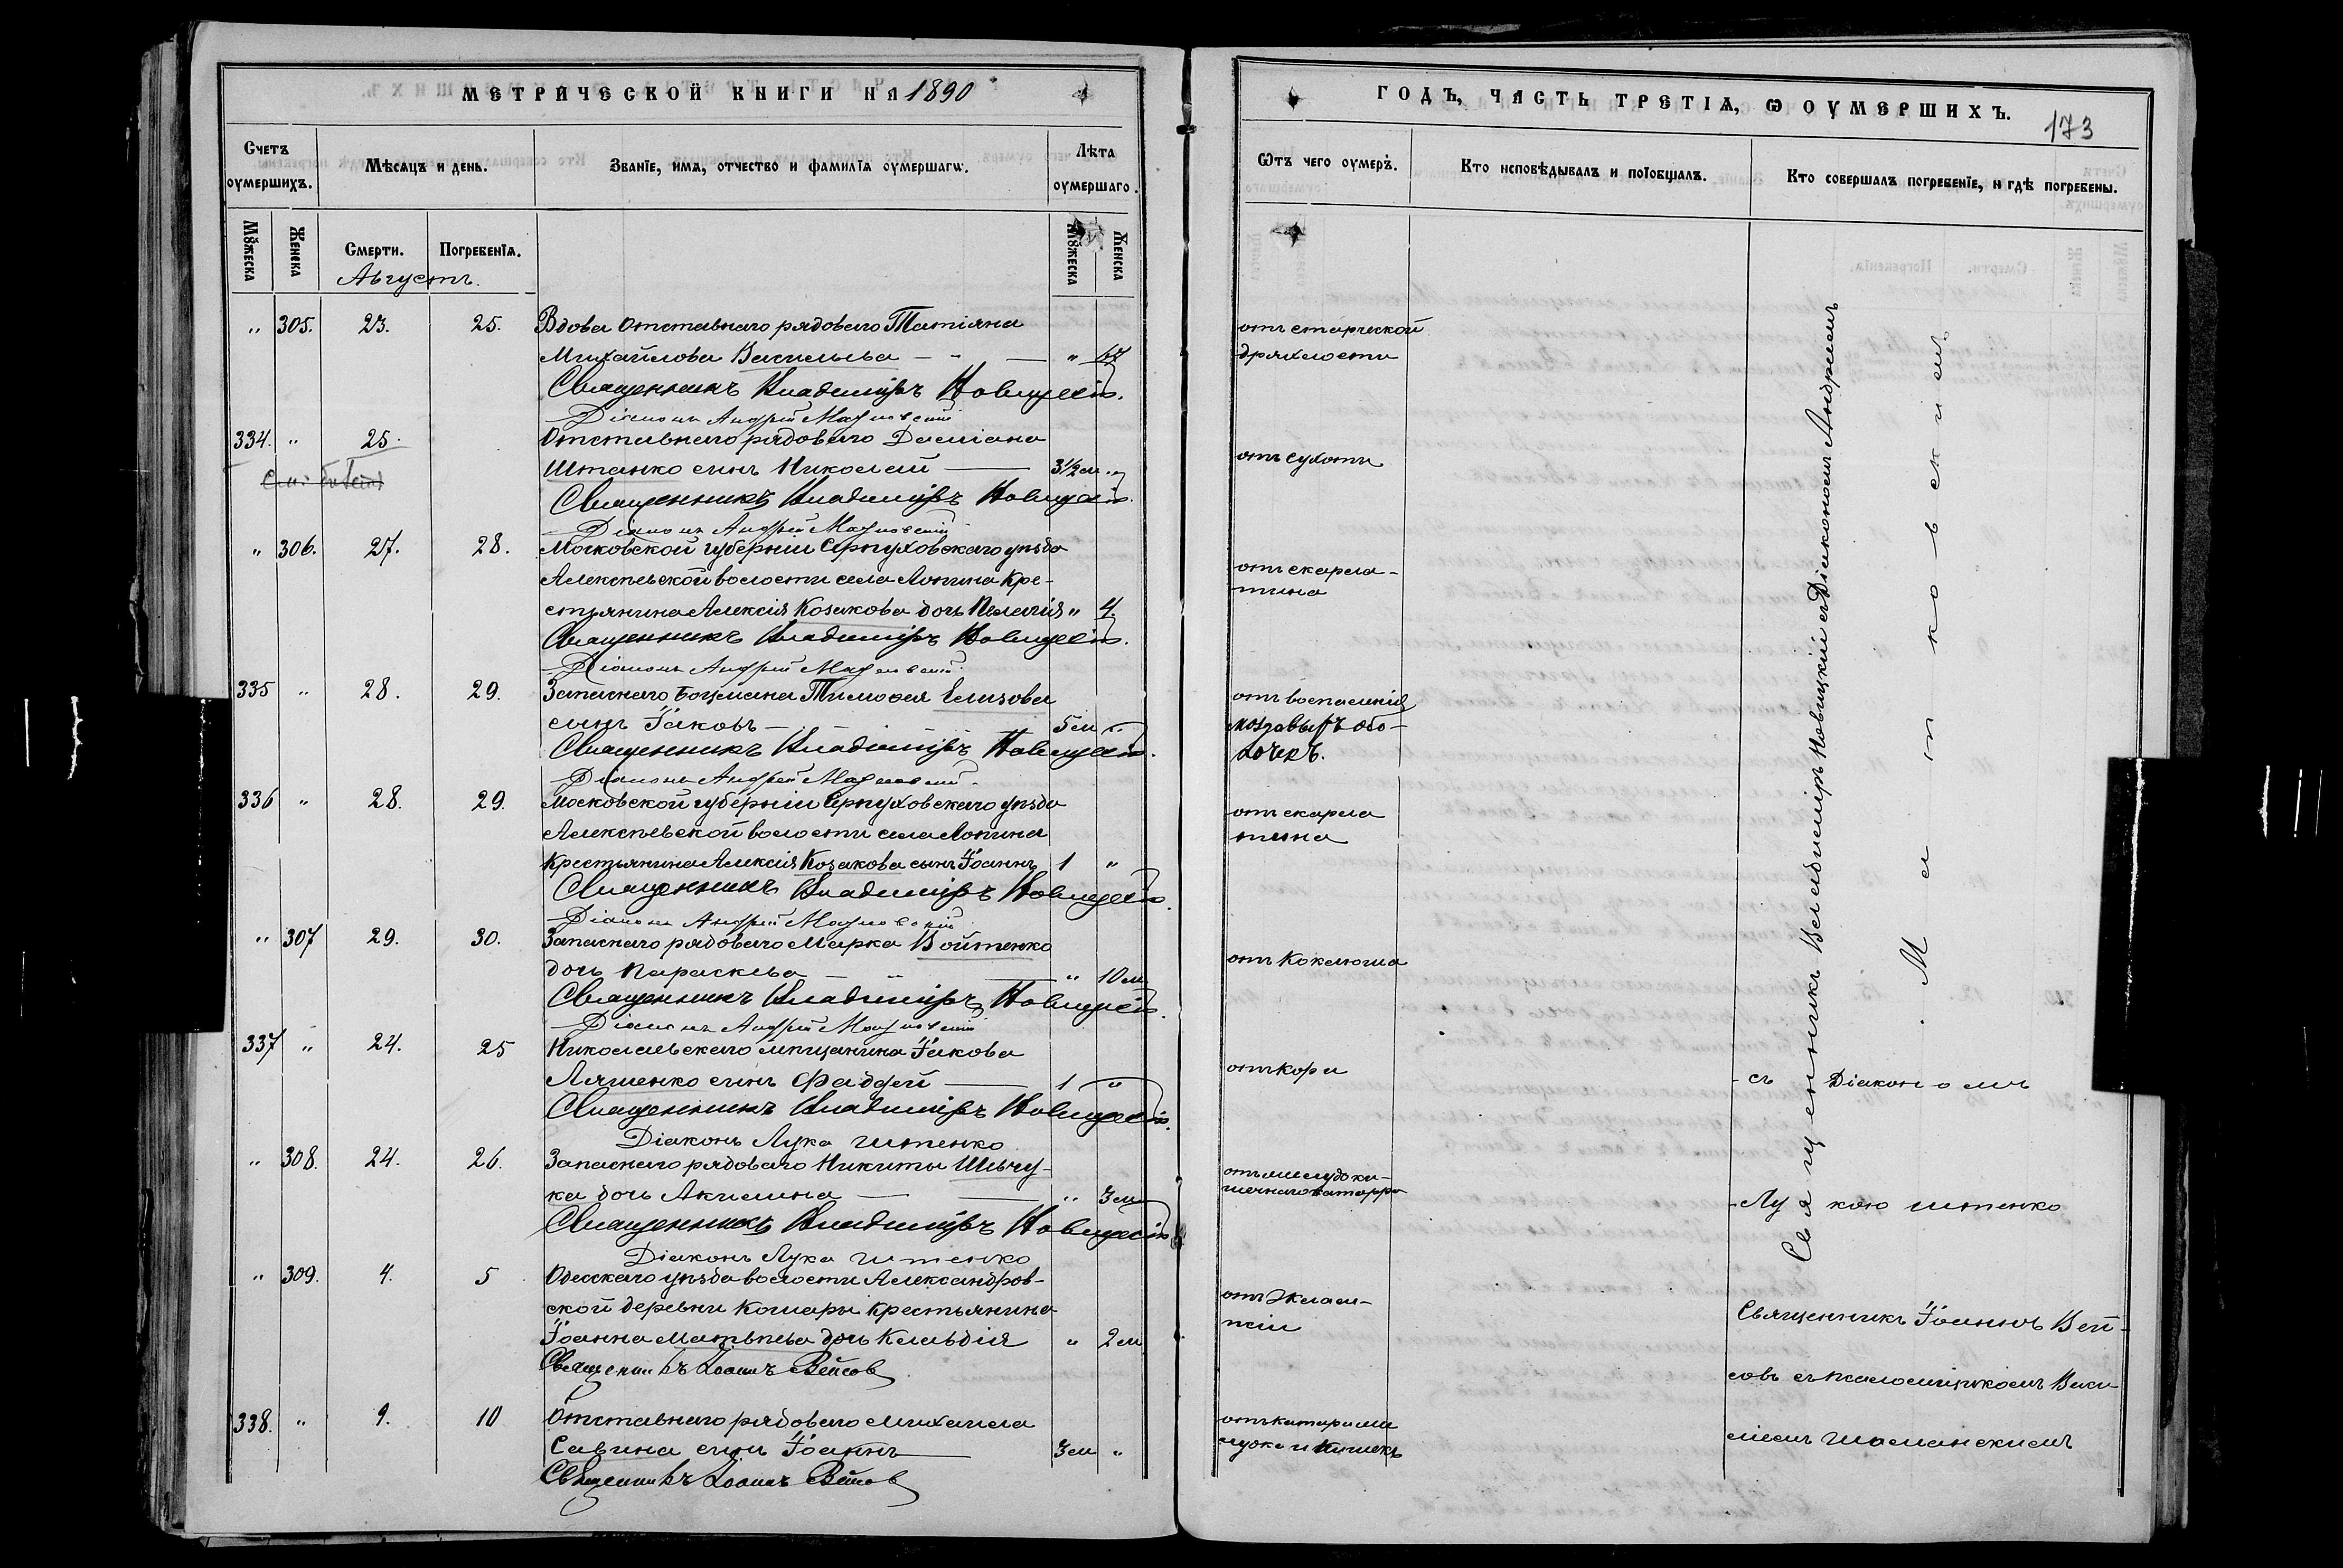 МЕТРИЧЕСКОЙ КНИГИ НА 1890
Счетъ оумершихъ.
Мѣсяцъ и день.
Званіе, имя, отчество и фамилія оумершагѡ.
Лѣта оумершаго.
Мꙋжеска
Женска
Смерти.
Погребенія.
Мꙋжеска
Женска
Августъ.
" 305. 23. 25. Вдова отставнаго рядоваго Татіана
Михайлова Васильева — " — "
Священникъ Владиміръ Новицкій.
Діаконъ Андрей
334. " 25. Отставнаго рядоваго Даміана
Штанко сынъ Николай — 3½ м "
Священникъ Владиміръ Новицкій.
Діаконъ Андрей
" 306. 27. 28. Московской губерніи Серпуховскаго уѣзда
Алексѣевской волости села Лопина кре-
стьянина Алексія Козакова дочь Пелагія " 4.
Священникъ Владиміръ Новицкій.
Діаконъ Андрей
335 " 28. 29. Запаснаго Боцмана Тимофея Елизова
сынъ Іаковъ — 5 м "
Священникъ Владиміръ Новицкій.
Діаконъ Андрей
336 " 28. 29. Московской губерніи Серпуховскаго уѣзда
Алексѣевской волости села Лопина
Крестьянина Алексія Козакова сынъ Іоаннъ 1 "
Священникъ Владиміръ Новицкій.
Діаконъ Андрей
" 307 29. 30. Запаснаго рядоваго Марка Войтенко
дочь Параскева — " — " 10 м
Священникъ Владиміръ Новицкій.
Діаконъ Андрей
337 " 24. 25 Николаевскаго мѣщанина Іакова
Ляшенко сынъ Фаддей — 1 "
Священникъ Владиміръ Новицкій.
Діаконъ Лука Итенко
" 308. 24. 26. Запаснаго рядоваго Никиты Шевчу-
ка дочь Акилина — — " 3 м
Священникъ Владиміръ Новицкій
Діаконъ Лука Итенко
" 309. 4. 5 Одесскаго уѣзда волости Александров-
ской деревни Комары крестьянина
Іоанна Матвѣева дочь Клавдія " 2 м
Священникъ Іоаннъ Вейсов
338. " 9. 10 Отставнаго рядоваго Михаила
Савина сынъ Іоаннъ — 3 м "
Священникъ Іоаннъ Вейсов
ГОДЪ, ЧАСТЬ ТРЕТІѦ, Ѡ ОУМЕРШИХЪ.
173
Ѿтъ чего оумеръ.
Кто исповѣдывалъ и пріобщалъ.
Кто совершалъ погребеніе, и гдѣ погребены.
отъ старческой
дряхлости
отъ сухоти
отъ скарла-
тина
отъ воспаленія
мозговыхъ обо-
лочекъ.
отъ скарла
тина
отъ Коклюша
отъ Кори
отъ желудоки-
шечнаго катарра
отъ Эклам-
псіи
отъ катара же
лудка и кишекъ
Священникъ Владиміръ Новицкій съ Діакономъ Андреемъ
съ Діакономъ
Лукою Итенко
Священникъ Іоаннъ Вей-
совъ съ псаломщикомъ Васи
ліемъ Шаманскимъ